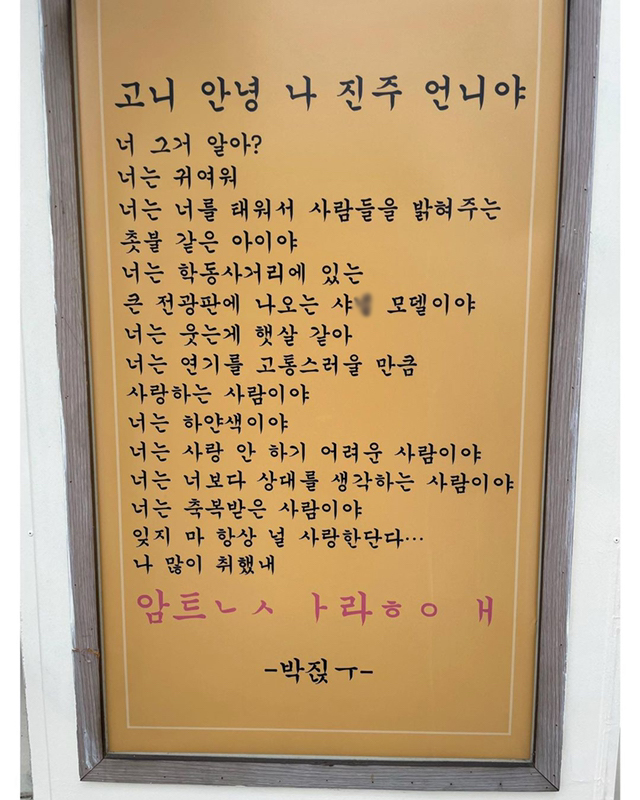 고니 안녕 나 진주 언니야
너 그거 알아?
너는 귀여워
너는 너를 태워서 사람들을 밝혀주는
촛불 같은 아이야
너는 학동사거리에 있는
큰 전광판에 나오는 샤 모델이야
너는 웃는게 햇살 같아
너는 연기를 고통스러울 만큼
사랑하는 사람이야
너는 하얀색이야
너는 사랑 안 하기 어려운 사람이야
너는 너보다 상대를 생각하는 사람이야
너는 축복받은 사람이야
잊지 마 항상 널 사랑한단다…
나 많이 취했내
암트ㄴㅅ ㅏ라ㅎㅇ ㅐ
-박짅ㅜ-